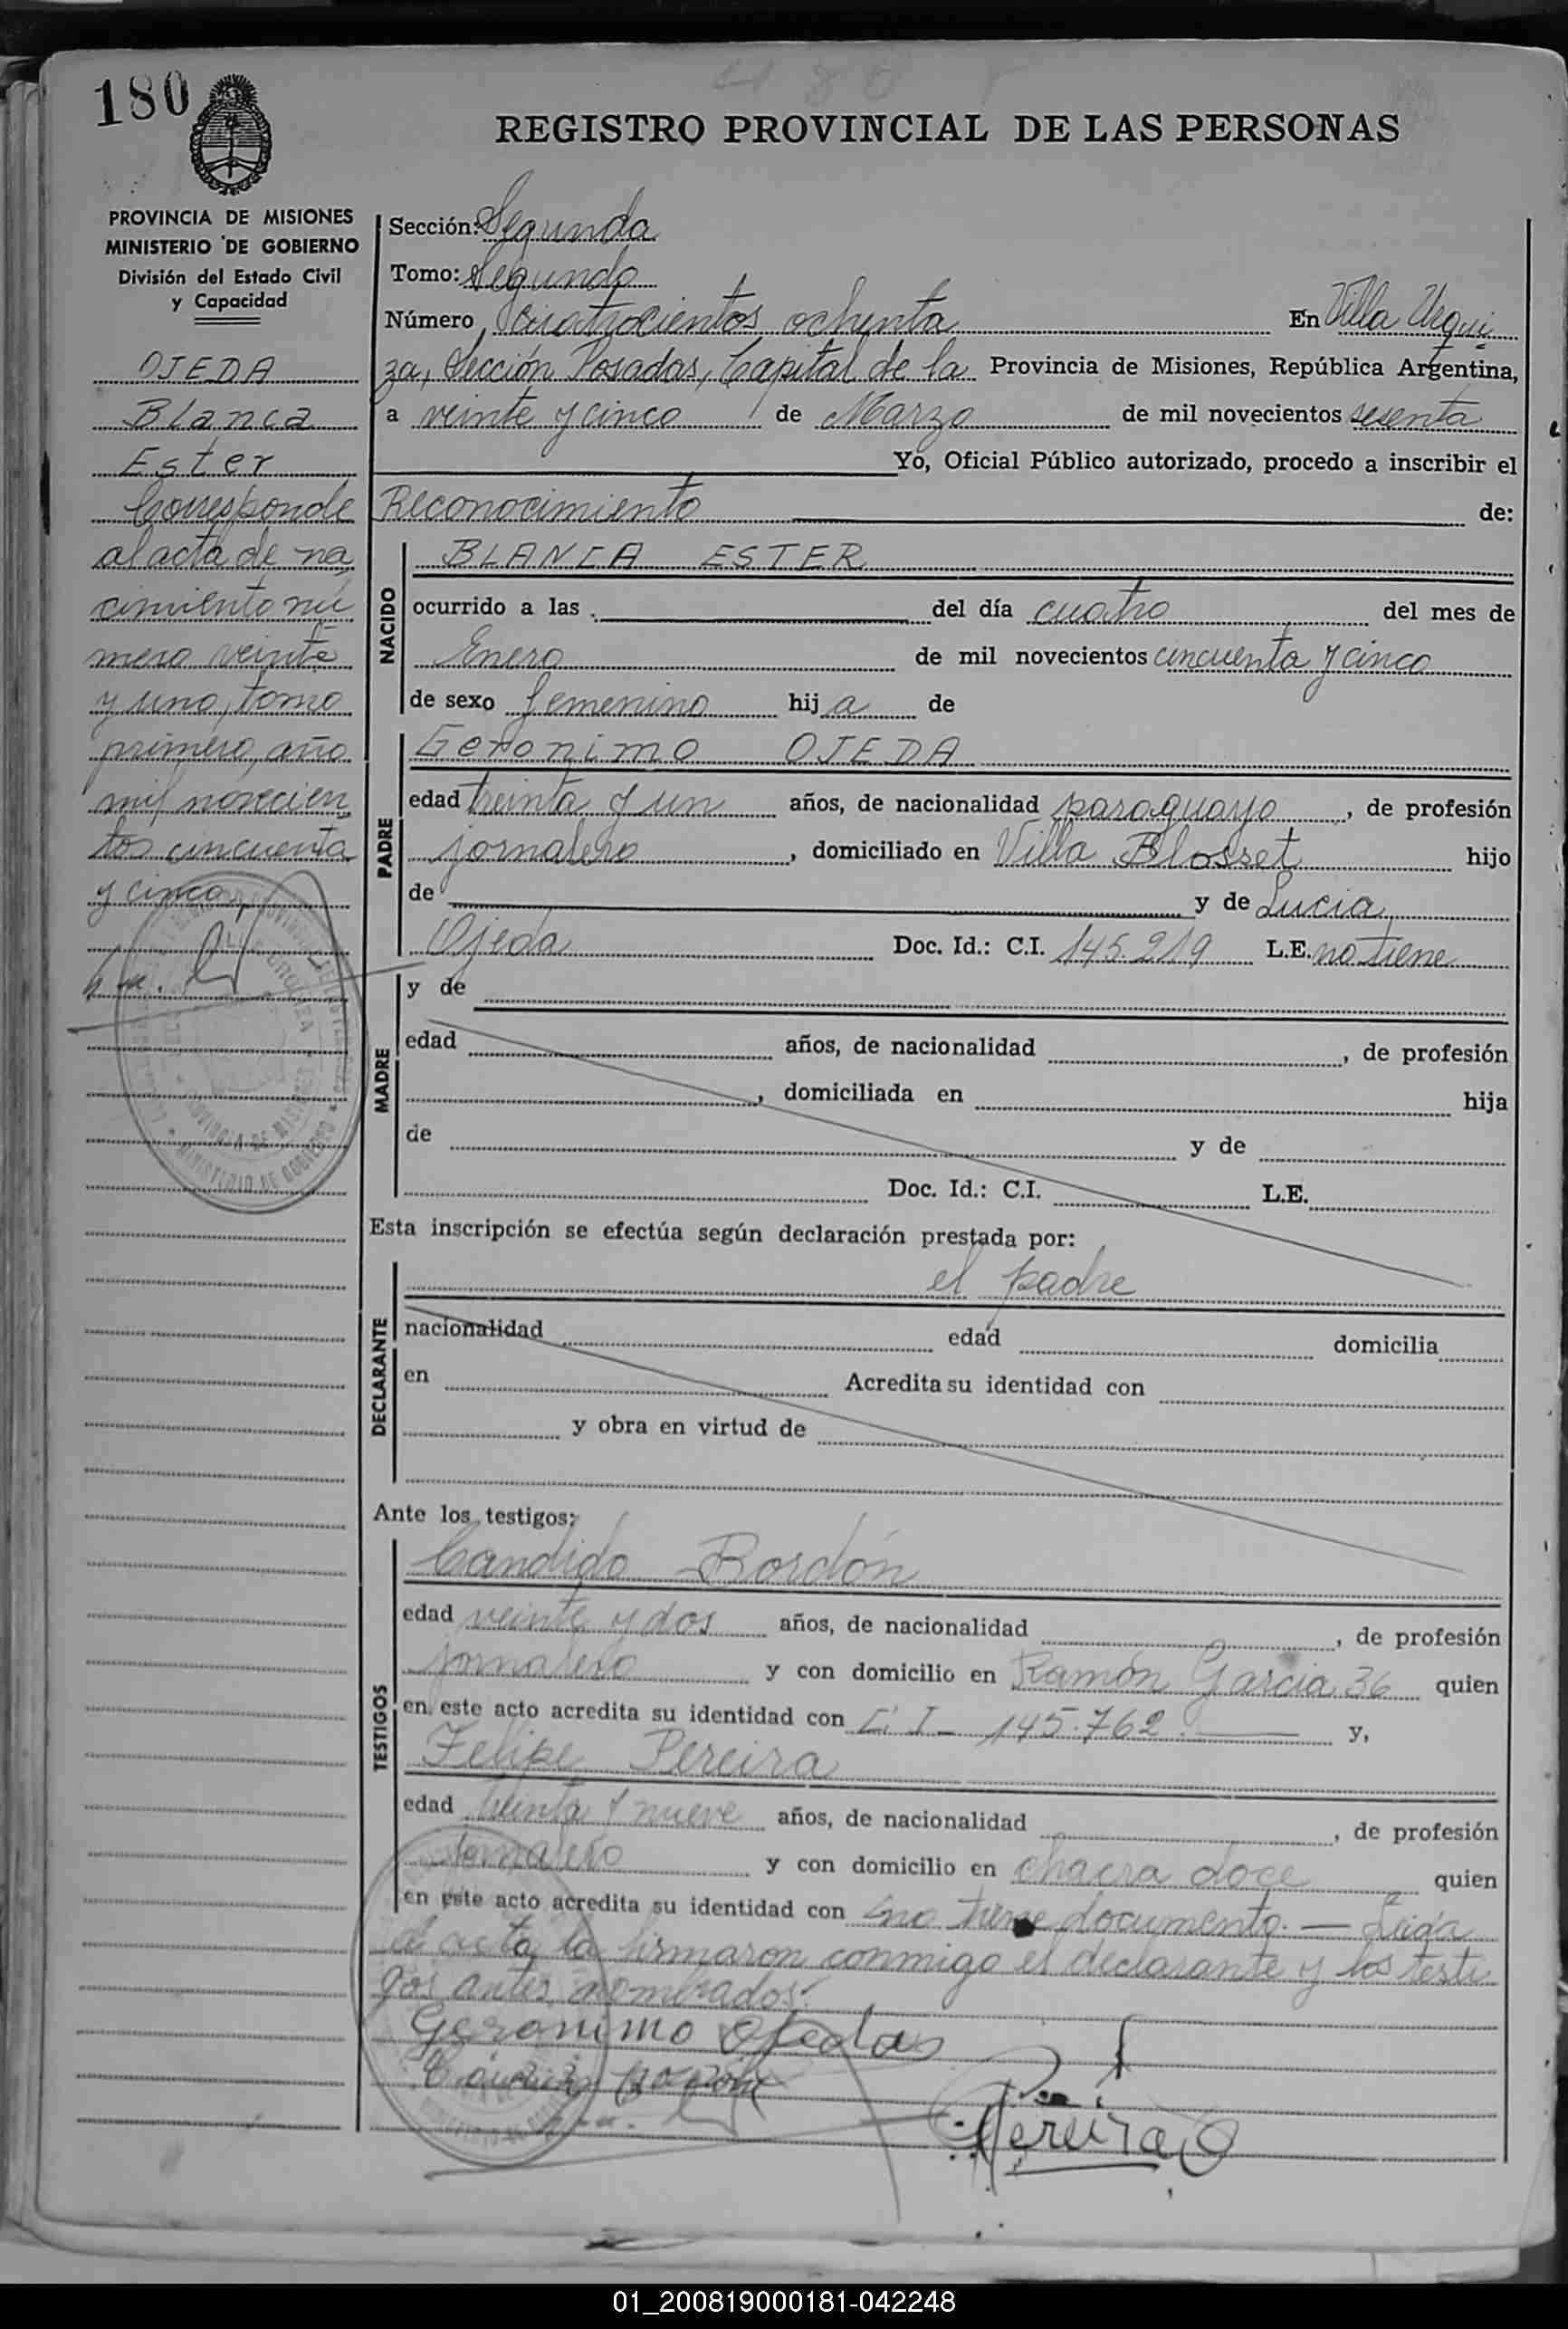 180
REGISTRO PROVINCIAL DE LAS PERSONAS
PROVINCIA DE MISIONES
MINISTERIO DE GOBIERNO
División del Estado Civil
y Capacidad
OJEDA
Blanca
Ester
Corresponde
al acta de na
cimiento nú
mero veinte
y uno, tomo
primero, año
mil novecien
tos cincuenta
y cinco
Sección: Segunda
Tomo: Segundo
Número Cuatrocientos ochenta En Villa Urqui
za, Sección Posadas, Capital de la Provincia de Misiones, República Argentina,
a veinte y cinco de Marzo de mil novecientos sesenta
Yo, Oficial Público autorizado, procedo a inscribir el
Reconocimiento de:
NACIDO
BLANCA ESTER
ocurrido a las del día cuatro del mes de
Enero de mil novecientos cincuenta y cinco
de sexo femenino hija de
PADRE
Geronimo OJEDA
edad treinta y un años, de nacionalidad paraguayo, de profesión
jornalero, domiciliado en Villa Blosset hijo
de y de Lucia
Ojeda Doc. Id.: C.I. 145.219 L.E. no tiene
MADRE
y de
edad años, de nacionalidad , de profesión
, domiciliada en hija
de y de
Doc. Id.: C.I. L.E.
Esta inscripción se efectúa según declaración prestada por:
DECLARANTE
el padre
nacionalidad edad domicilia
en Acredita su identidad con
y obra en virtud de
Ante los testigos:
TESTIGOS
Candido Bordón
edad veinte y dos años, de nacionalidad , de profesión
jornalero y con domicilio en Ramón Garcia 36 quien
en este acto acredita su identidad con C.I. 145.762. y,
Felipe Pereira
edad treinta y nueve años, de nacionalidad , de profesión
jornalero y con domicilio en chacra doce quien
en este acto acredita su identidad con no tiene documento. — Leida
el acta, la firmaron conmigo el declarante y los testi
gos antes nombrados.
Geronimo Ojeda
Pereira
01_200819000181-042248